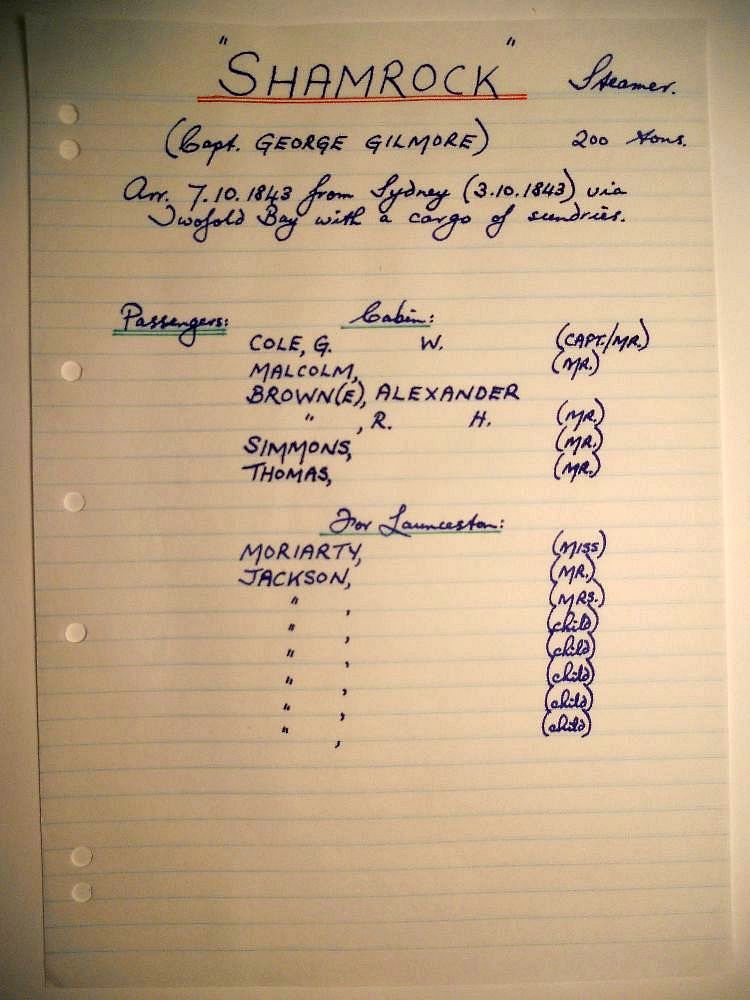 "SHAMROCK" Steamer.
(Capt. GEORGE GILMORE) 200 tons.
Arr. 7.10.1843 from Sydney (3.10.1843) via
Twofold Bay with a cargo of sundries.
Passengers: Cabin:
COLE, G. W. (CAPT./MR.)
MALCOLM, (MR.)
BROWN(E), ALEXANDER
" , R. H. (MR.)
SIMMONS, (MR.)
THOMAS, (MR.)
For Launceston:
MORIARTY, (MISS)
JACKSON, (MR.)
" , (MRS.)
" , (child)
" , (child)
" , (child)
" , (child)
" , (child)